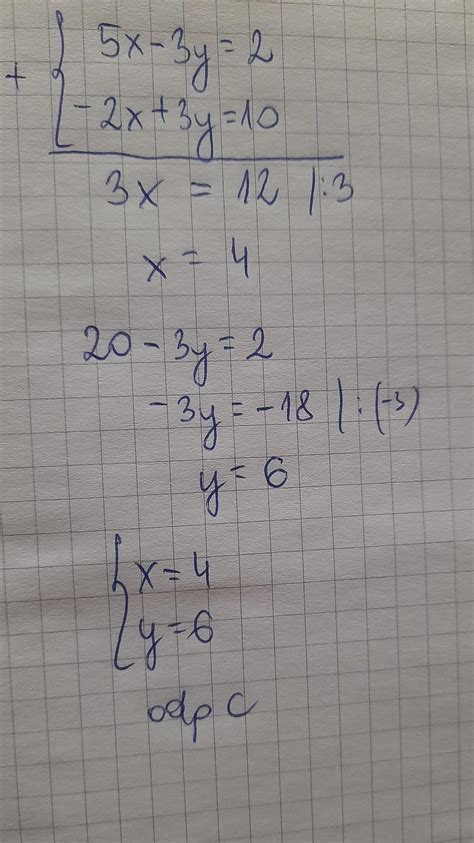 5x-3y=2
+
-2x+3y=10
3x = 12 |:3
x = 4
20-3y=2
-3y=-18 |:(-3)
y=6
x=4
y=6
odp C